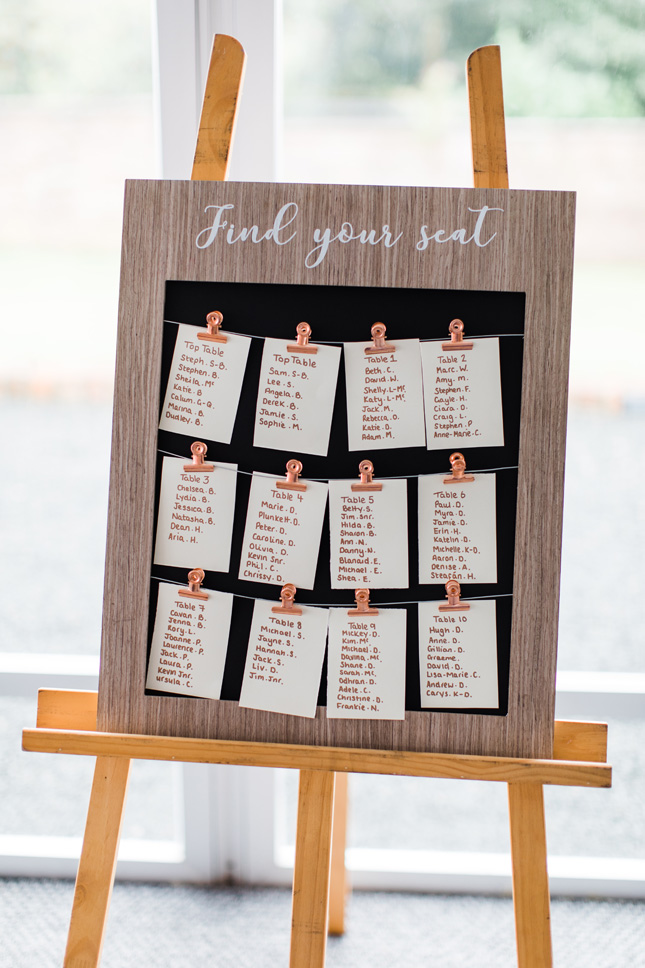 Find your seat
Top Table
Steph. S-B.
Stephen. B.
Sheila. Mc
Katie. B
Calum. G-Q.
Marina. B
Dudley. B.
Top Table
Sam. S-B.
Lee. S.
Angela. B.
Derek. B.
Jamie. S.
Sophie. M.
Table 1
Beth. C.
David. W.
Shelly. L-Mc.
Katy. L-Mc.
Jack. M.
Rebecca. D.
Katie. D.
Adam. M.
Table 2
Marc. W.
Amy. M.
Stephen. F.
Gayle. H.
Ciara. D.
Craig. L.
Stephen. P.
Anne-Marie. C.
Table 3
Chelsea. B.
Lydia. B.
Jessica. B.
Natasha. B.
Dean. H.
Aria. H.
Table 4
Marie. D.
Plunkett. D.
Peter. D.
Caroline. D.
Olivia. D.
Kevin Snr.
Phil. C.
Chrissy. D.
Table 5
Betty. S.
Jim. Snr.
Hilda. B.
Sharon. B.
Ann. N.
Danny. N.
Blanaid. E.
Michael. E.
Shea. E.
Table 6
Paul. D.
Myra. D.
Jamie. D.
Erin. H.
Katelin. D.
Michelle. K-D.
Aaron. D.
Denise. A.
Steafán. H.
Table 7
Cavan. B.
Jenna. B.
Rory. L.
Joanne. P.
Laurence. P.
Jack. P.
Laura. P.
Kevin Jnr.
Ursula. C.
Table 8
Michael. S.
Jayne. S.
Hannah. S.
Jack. S.
Liv. D.
Jim. Jnr.
Table 9
Mickey. D.
Kim. Mc.
Michael. D.
Davina. Mc.
Shane. D.
Sarah. Mc.
Odhran. D.
Adele. C.
Christine. D.
Frankie. N.
Table 10
Hugh. D.
Anne. D.
Gillian. D.
Graeme.
David. D.
Lisa-Marie. C.
Andrew. D.
Carys. K-D.